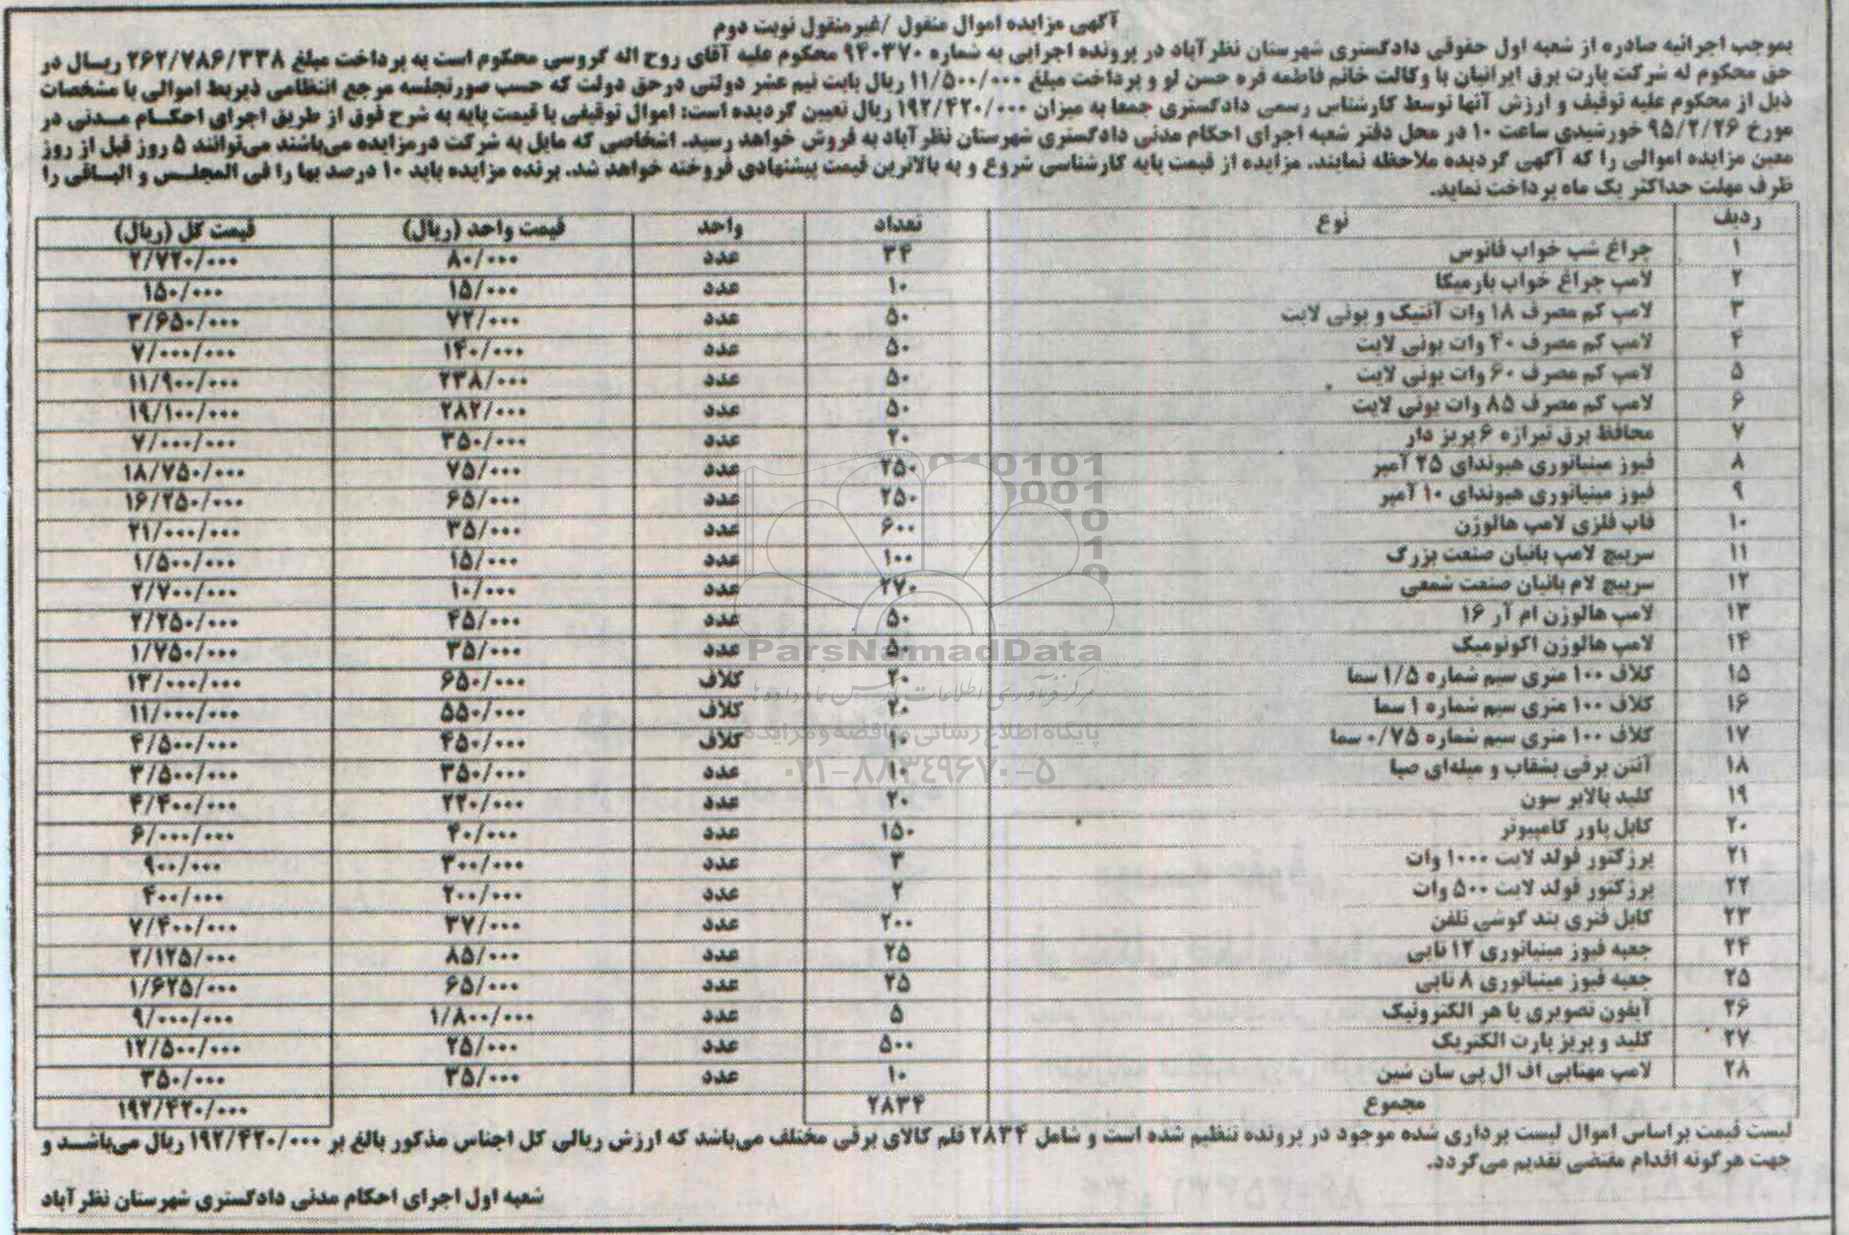 آگهی مزایده اموال منقول /غیرمنقول نوبت دوم
بموجب اجرائیه صادره از شعبه اول حقوقی دادگستری شهرستان نظرآباد در پرونده اجرایی به شماره ۹۴۰۳۷۰ محکوم علیه آقای روح اله گروسی محکوم است به پرداخت مبلغ ۲۶۲/۷۸۶/۳۳۸ ریـال در
حق محکوم له شرکت پارت برق ایرانیان با وکالت خانم فاطمه قره حسن لو و پرداخت مبلغ ۱۱/۵۰۰/۰۰۰ ریال بابت نیم عشر دولتی درحق دولت که حسب صورتجلسه مرجع انتظامی ذیربط اموالی با مشخصات
ذیل از محکوم علیه توقیف و ارزش آنها توسط کارشناس رسمی دادگستری جمعا به میزان ۱۹۲/۴۲۰/۰۰۰ ریال تعیین گردیده است: اموال توقیفی با قیمت پایه به شرح فوق از طریق اجرای احکـام مـدنی در
مورخ ۹۵/۲/۲۶ خورشیدی ساعت ۱۰ در محل دفتر شعبه اجرای احکام مدنی دادگستری شهرستان نظر آباد به فروش خواهد رسید. اشخاصی که مایل به شرکت درمزایده می‌باشند می‌توانند ۵ روز قبل از روز
معین مزایده اموالی را که آگهی گردیده ملاحظه نمایند. مزایده از قیمت پایه کارشناسی شروع و به بالاترین قیمت پیشنهادی فروخته خواهد شد. برنده مزایده باید ۱۰ درصد بها را فی المجلـس و البـاقی را
ظرف مهلت حداکثر یک ماه پرداخت نماید.
ردیف نوع تعداد واحد قیمت واحد (ریال) قیمت کل (ریال)
۱ چراغ شب خواب فانوس ۳۴ عدد ۸۰/۰۰۰ ۲/۷۲۰/۰۰۰
۲ لامپ چراغ خواب پارمیکا ۱۰ عدد ۱۵/۰۰۰ ۱۵۰/۰۰۰
۳ لامپ کم مصرف ۱۸ وات آنتیک و یونی لایت ۵۰ عدد ۷۲/۰۰۰ ۳/۶۵۰/۰۰۰
۴ لامپ کم مصرف ۴۰ وات یونی لایت ۵۰ عدد ۱۴۰/۰۰۰ ۷/۰۰۰/۰۰۰
۵ لامپ کم مصرف ۶۰ وات یونی لایت ۵۰ عدد ۲۳۸/۰۰۰ ۱۱/۹۰۰/۰۰۰
۶ لامپ کم مصرف ۸۵ وات یونی لایت ۵۰ عدد ۲۸۲/۰۰۰ ۱۹/۱۰۰/۰۰۰
۷ محافظ برق تیراژه ۶ پریز دار ۲۰ عدد ۳۵۰/۰۰۰ ۷/۰۰۰/۰۰۰
۸ فیوز مینیاتوری هیوندای ۲۵ آمپر ۲۵۰ عدد ۷۵/۰۰۰ ۱۸/۷۵۰/۰۰۰
۹ فیوز مینیاتوری هیوندای ۱۰ آمپر ۲۵۰ عدد ۶۵/۰۰۰ ۱۶/۲۵۰/۰۰۰
۱۰ قاب فلزی لامپ هالوژن ۶۰۰ عدد ۳۵/۰۰۰ ۲۱/۰۰۰/۰۰۰
۱۱ سرپیچ لامپ بانیان صنعت بزرگ ۱۰۰ عدد ۱۵/۰۰۰ ۱/۵۰۰/۰۰۰
۱۲ سرپیچ لام بانیان صنعت شمعی ۲۷۰ عدد ۱۰/۰۰۰ ۲/۷۰۰/۰۰۰
۱۳ لامپ هالوژن ام آر ۱۶ ۵۰ عدد ۴۵/۰۰۰ ۲/۲۵۰/۰۰۰
۱۴ لامپ هالوژن اکونومیک ۵۰ عدد ۳۵/۰۰۰ ۱/۷۵۰/۰۰۰
۱۵ کلاف ۱۰۰ متری سیم شماره ۱/۵ سما ۲۰ کلاف ۶۵۰/۰۰۰ ۱۳/۰۰۰/۰۰۰
۱۶ کلاف ۱۰۰ متری سیم شماره ۱ سما ۲۰ کلاف ۵۵۰/۰۰۰ ۱۱/۰۰۰/۰۰۰
۱۷ کلاف ۱۰۰ متری سیم شماره ۰/۷۵ سما ۱۰ کلاف ۴۵۰/۰۰۰ ۴/۵۰۰/۰۰۰
۱۸ آنتن برقی بشقاب و میله‌ای صبا ۱۰ عدد ۳۵۰/۰۰۰ ۳/۵۰۰/۰۰۰
۱۹ کلید بالابر سون ۲۰ عدد ۲۲۰/۰۰۰ ۴/۴۰۰/۰۰۰
۲۰ کابل پاور کامپیوتر ۱۵۰ عدد ۴۰/۰۰۰ ۶/۰۰۰/۰۰۰
۲۱ پرژکتور فولد لایت ۱۰۰۰ وات ۳ عدد ۳۰۰/۰۰۰ ۹۰۰/۰۰۰
۲۲ پرژکتور فولد لایت ۵۰۰ وات ۲ عدد ۲۰۰/۰۰۰ ۴۰۰/۰۰۰
۲۳ کابل فنری بند گوشی تلفن ۲۰۰ عدد ۳۷/۰۰۰ ۷/۴۰۰/۰۰۰
۲۴ جعبه فیوز مینیاتوری ۱۲ تایی ۲۵ عدد ۸۵/۰۰۰ ۲/۱۲۵/۰۰۰
۲۵ جعبه فیوز مینیاتوری ۸ تایی ۲۵ عدد ۶۵/۰۰۰ ۱/۶۲۵/۰۰۰
۲۶ آیفون تصویری با هر الکترونیک ۵ عدد ۱/۸۰۰/۰۰۰ ۹/۰۰۰/۰۰۰
۲۷ کلید و پریز پارت الکتریک ۵۰۰ عدد ۲۵/۰۰۰ ۱۲/۵۰۰/۰۰۰
۲۸ لامپ مهتابی اف ال پی سان شین ۱۰ عدد ۳۵/۰۰۰ ۳۵۰/۰۰۰
مجموع ۲۸۳۴ ۱۹۲/۴۲۰/۰۰۰
لیست قیمت براساس اموال لیست برداری شده موجود در پرونده تنظیم شده است و شامل ۲۸۳۴ قلم کالای برقی مختلف می‌باشد که ارزش ریالی کل اجناس مذکور بالغ بر ۱۹۲/۴۲۰/۰۰۰ ریال می‌باشـد و
جهت هرگونه اقدام مقتضی تقدیم می‌گردد.
شعبه اول اجرای احکام مدنی دادگستری شهرستان نظر آباد
ParsNamadData
پایگاه اطلاع رسانی مناقصه و مزایده
۰۲۱-۸۸۳۴۹۶۷۰-۵